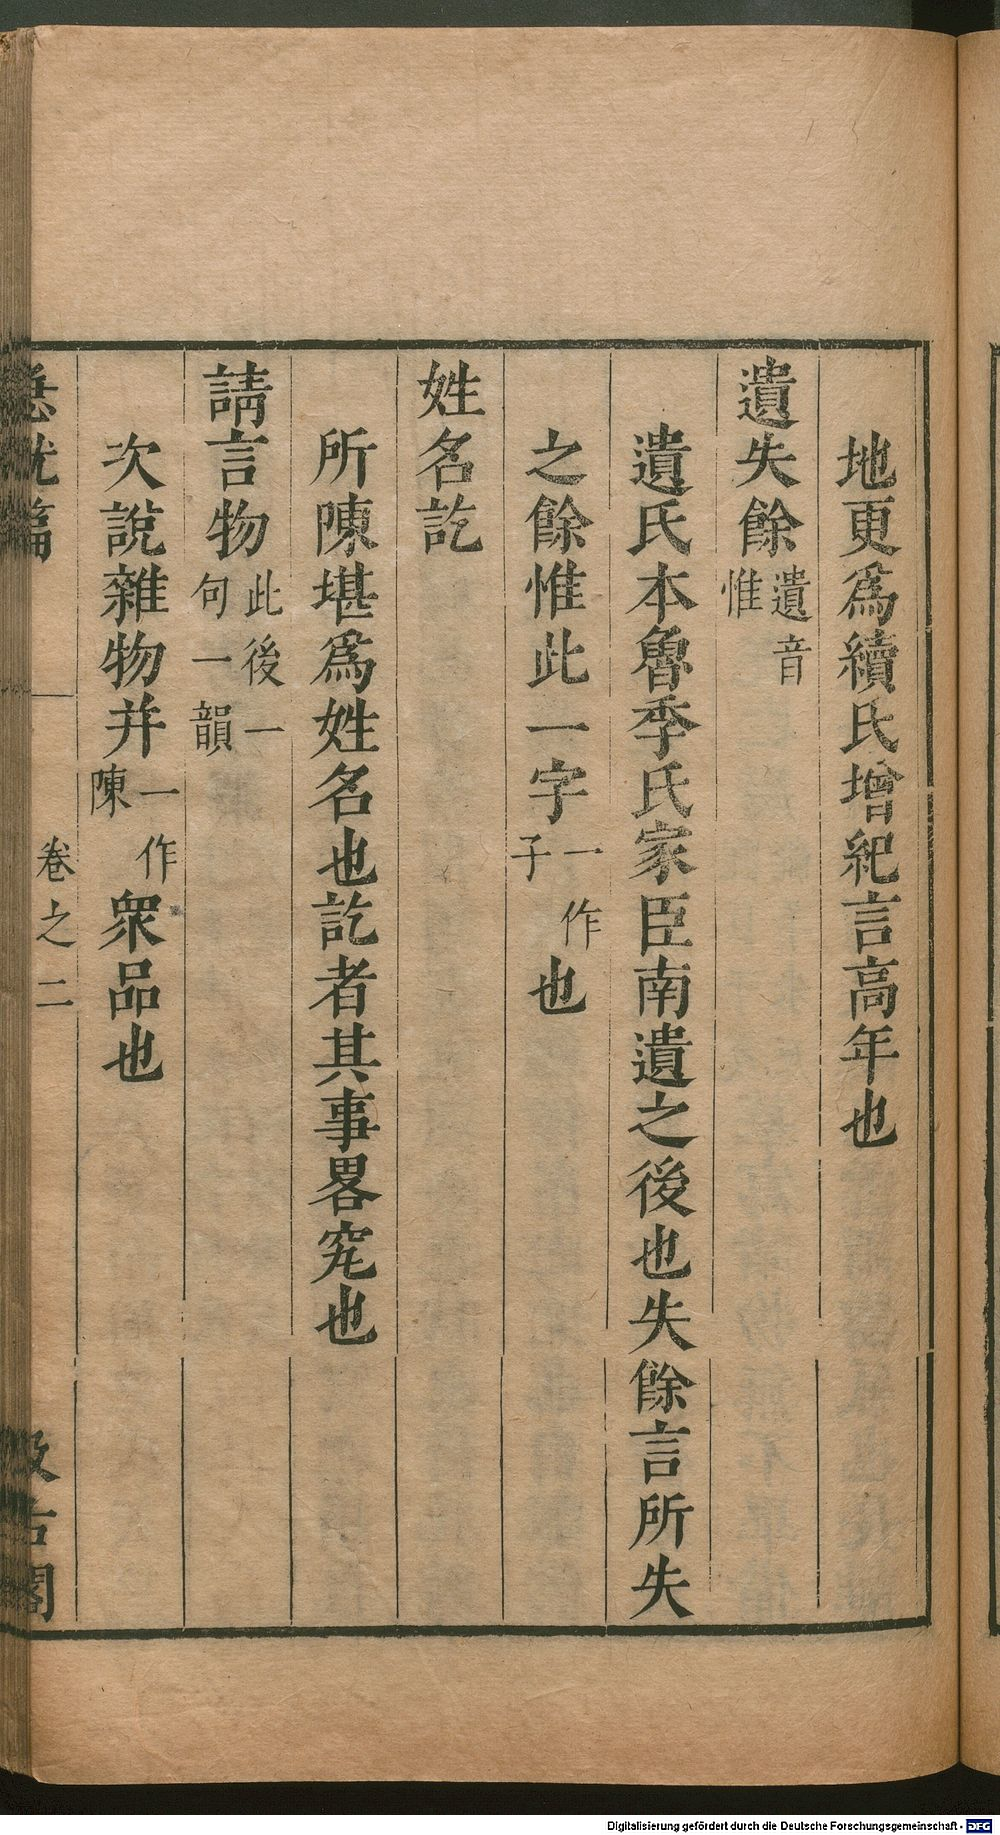 地更爲續氏增紀言高年也
遺失餘遺音惟
遺氏本魯季氏家臣南遺之後也失餘言所失
之餘惟此一字一作子也
姓名訖
所陳堪爲姓名也訖者其事畧究也
請言物此後一句一韻
次說雜物并一作陳衆品也
急就篇 卷之二 汲古閣
Digitalisierung gefördert durch die Deutsche Forschungsgemeinschaft - DFG